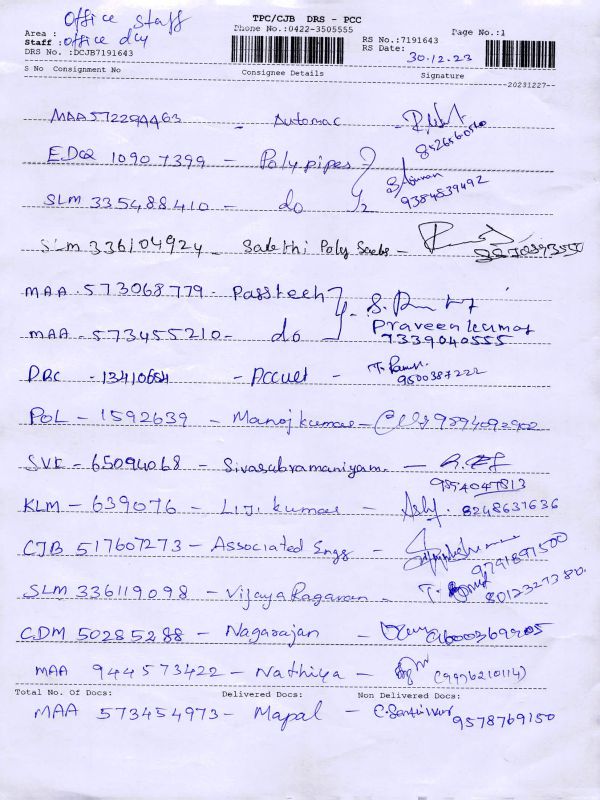 Office staff
TPC/CJB DRS - PCC
Phone No.:0422-3505555
Area :
Staff : office dly
DRS No. :DCJB7191643
RS No.:7191643
RS Date: 30.12.23
Page No.:1
S No Consignment No Consignee Details Signature
20231227
MAA 572294463 - Automac 8526560560
EDQ 10907399 - Poly pipes
9384839492
SLM 335488410 - do
SLM 336104924 - Sakthi Poly Sacks -
MAA - 573068779 - Passtech
Praveen kumar
MAA - 573455210 - do 7339040555
DRC - 13410654 - Accuet 9500387222
POL - 1592639 - Manojkumar -
SVK - 65094068 - Sivasubramaniyam -
9854047813
KLM - 639076 - L.J. kumar - 8248637636
CJB 517607273 - Associated Engg - 9791891500
SLM 336119098 - Vijaya Ragavan - 8012327380.
CDM 50285288 - Nagarajan - 9600369205
MAA 944573422 - Nathiya - (9976210114)
Total No. Of Docs: Delivered Docs: Non Delivered Docs:
MAA 573454973 - Mapal - 9578769150